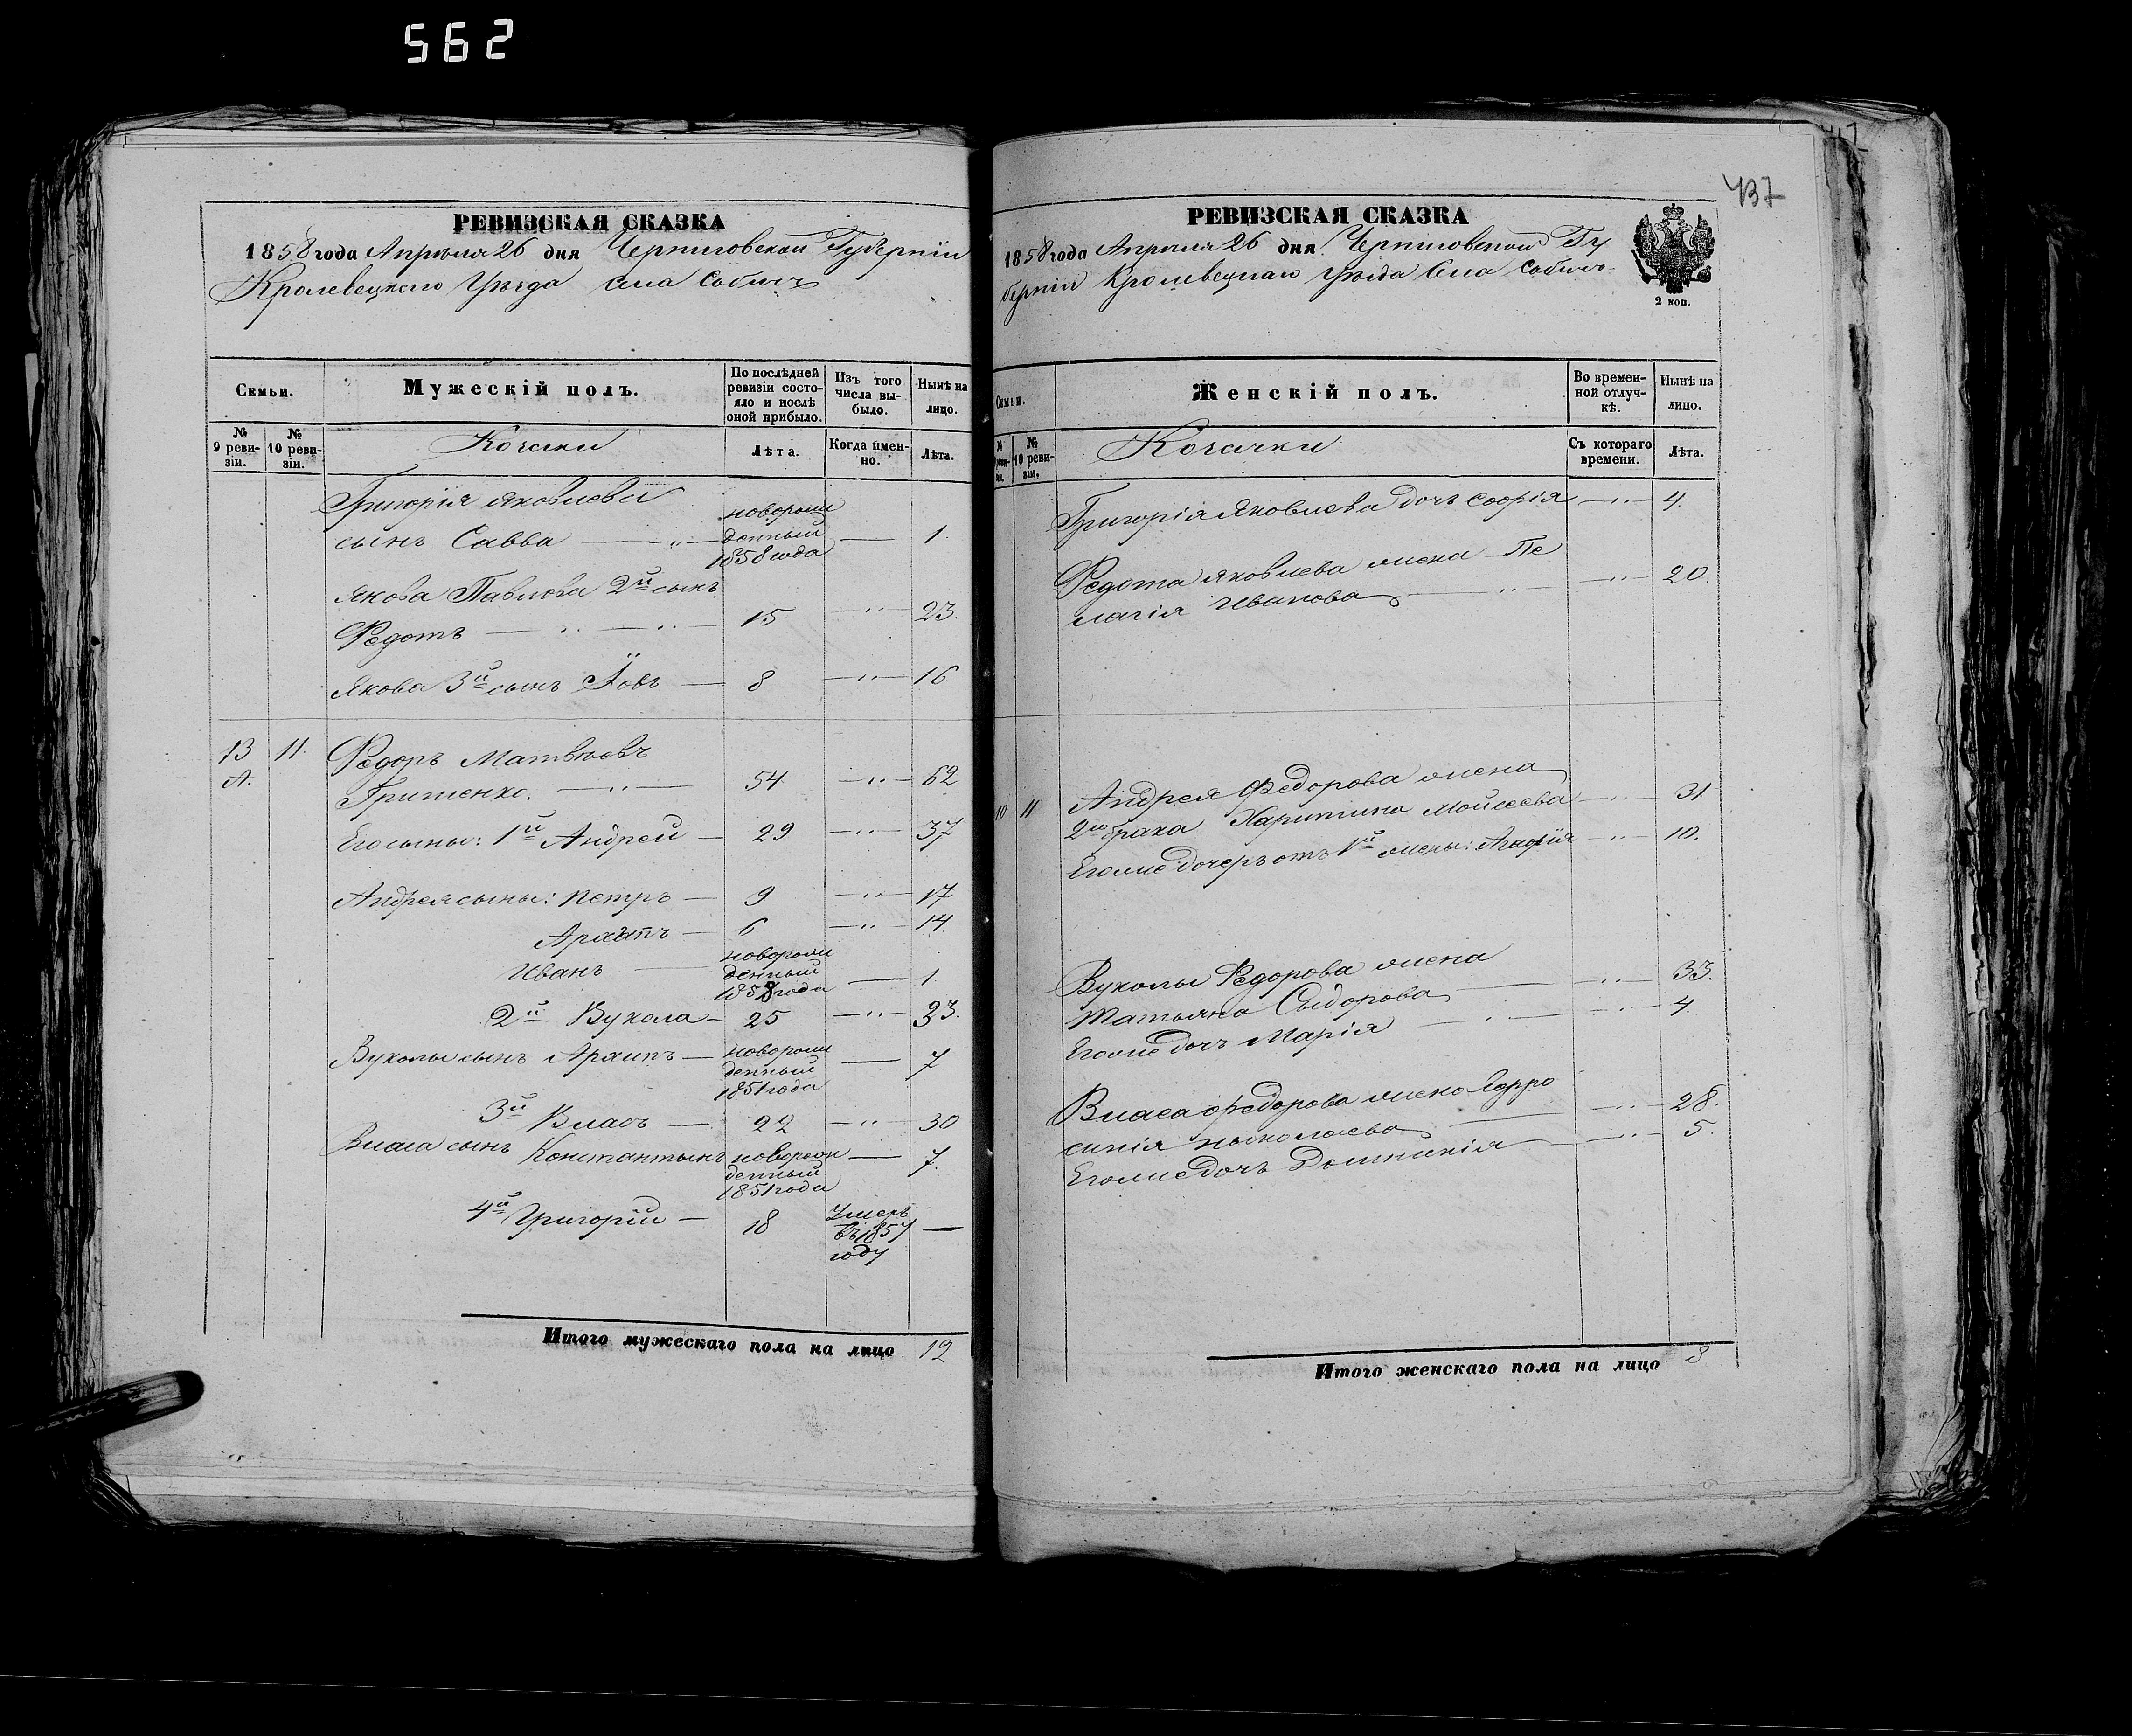 562
РЕВИЗСКАЯ СКАЗКА
1858 года Апреля 26 дня Черниговской Губерніи
Кролевецкаго Уезда Села Собичъ
Семьи.
Мужескій полъ.
По послѣдней ревизіи состояло и послѣ оной прибыло.
Изъ того числа выбыло.
Нынѣ на лицо.
№ 9 ревизіи.
№ 10 ревизіи.
Козаки
Лѣта.
Когда именно.
Лѣта.
Григорія Яковлева
сынъ Савва — новорожденный 1858 года — 1.
Якова Павлова 2й сынъ
Федотъ — 15 — 23.
Якова 3й сынъ Іовъ — 8 — 16
13 А. 11. Федоръ Матвѣевъ
Гриценко. — 54 — 62
Его сыны: 1й Андрей — 29 — 37
Андрея сыны: Петръ — 9 — 17
Архипъ — 6 — 14
Иванъ — новорожденный 1858 года — 1.
2й Вукола — 25 — 33.
Вуколы сынъ Архипъ — новорожденный 1851 года — 7
3й Власъ — 22 — 30
Власа сынъ Константинъ новорожденный 1851 года — 7.
4й Григорій — 18 Умеръ въ 1857 году —
Итого мужескаго пола на лицо 12
437
РЕВИЗСКАЯ СКАЗКА
1858 года Апреля 26 дня Черниговской Гу
берніи Кролевецкаго Уезда Села Собичъ
2 коп.
Семьи.
Женскій полъ.
Во временной отлучкѣ.
Нынѣ на лицо.
№ 10 ревизіи.
Козачки
Съ котораго времени.
Лѣта.
Григорія Яковлева дочь Софія — 4.
Федота Яковлева жена Пе
лагія Иванова — 20.
10 11 Андрея Федорова жена
2го брака Харитина Мойсеева — 31.
Его же дочерь отъ 1й жены: Агафія — 10.
Вуколы Федорова жена
Татьяна Сыдорова — 33.
Его же дочь Марія — 4.
Власа Федорова жена Ефро
синія Николаева — 28.
Его же дочь Домникія — 5.
Итого женскаго пола на лицо 8